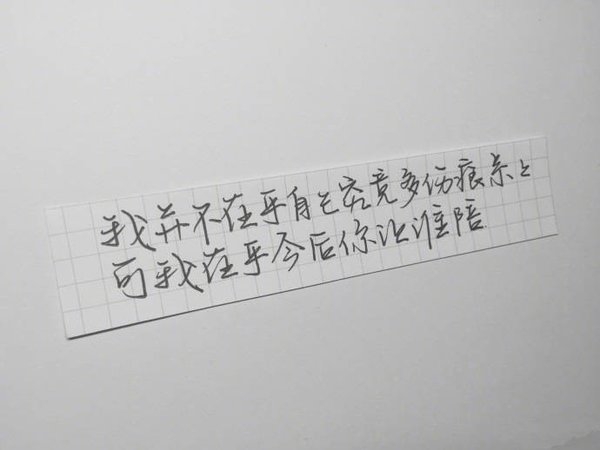 我并不在乎自己究竟多伤痕累之
可我在乎今后你让谁陪